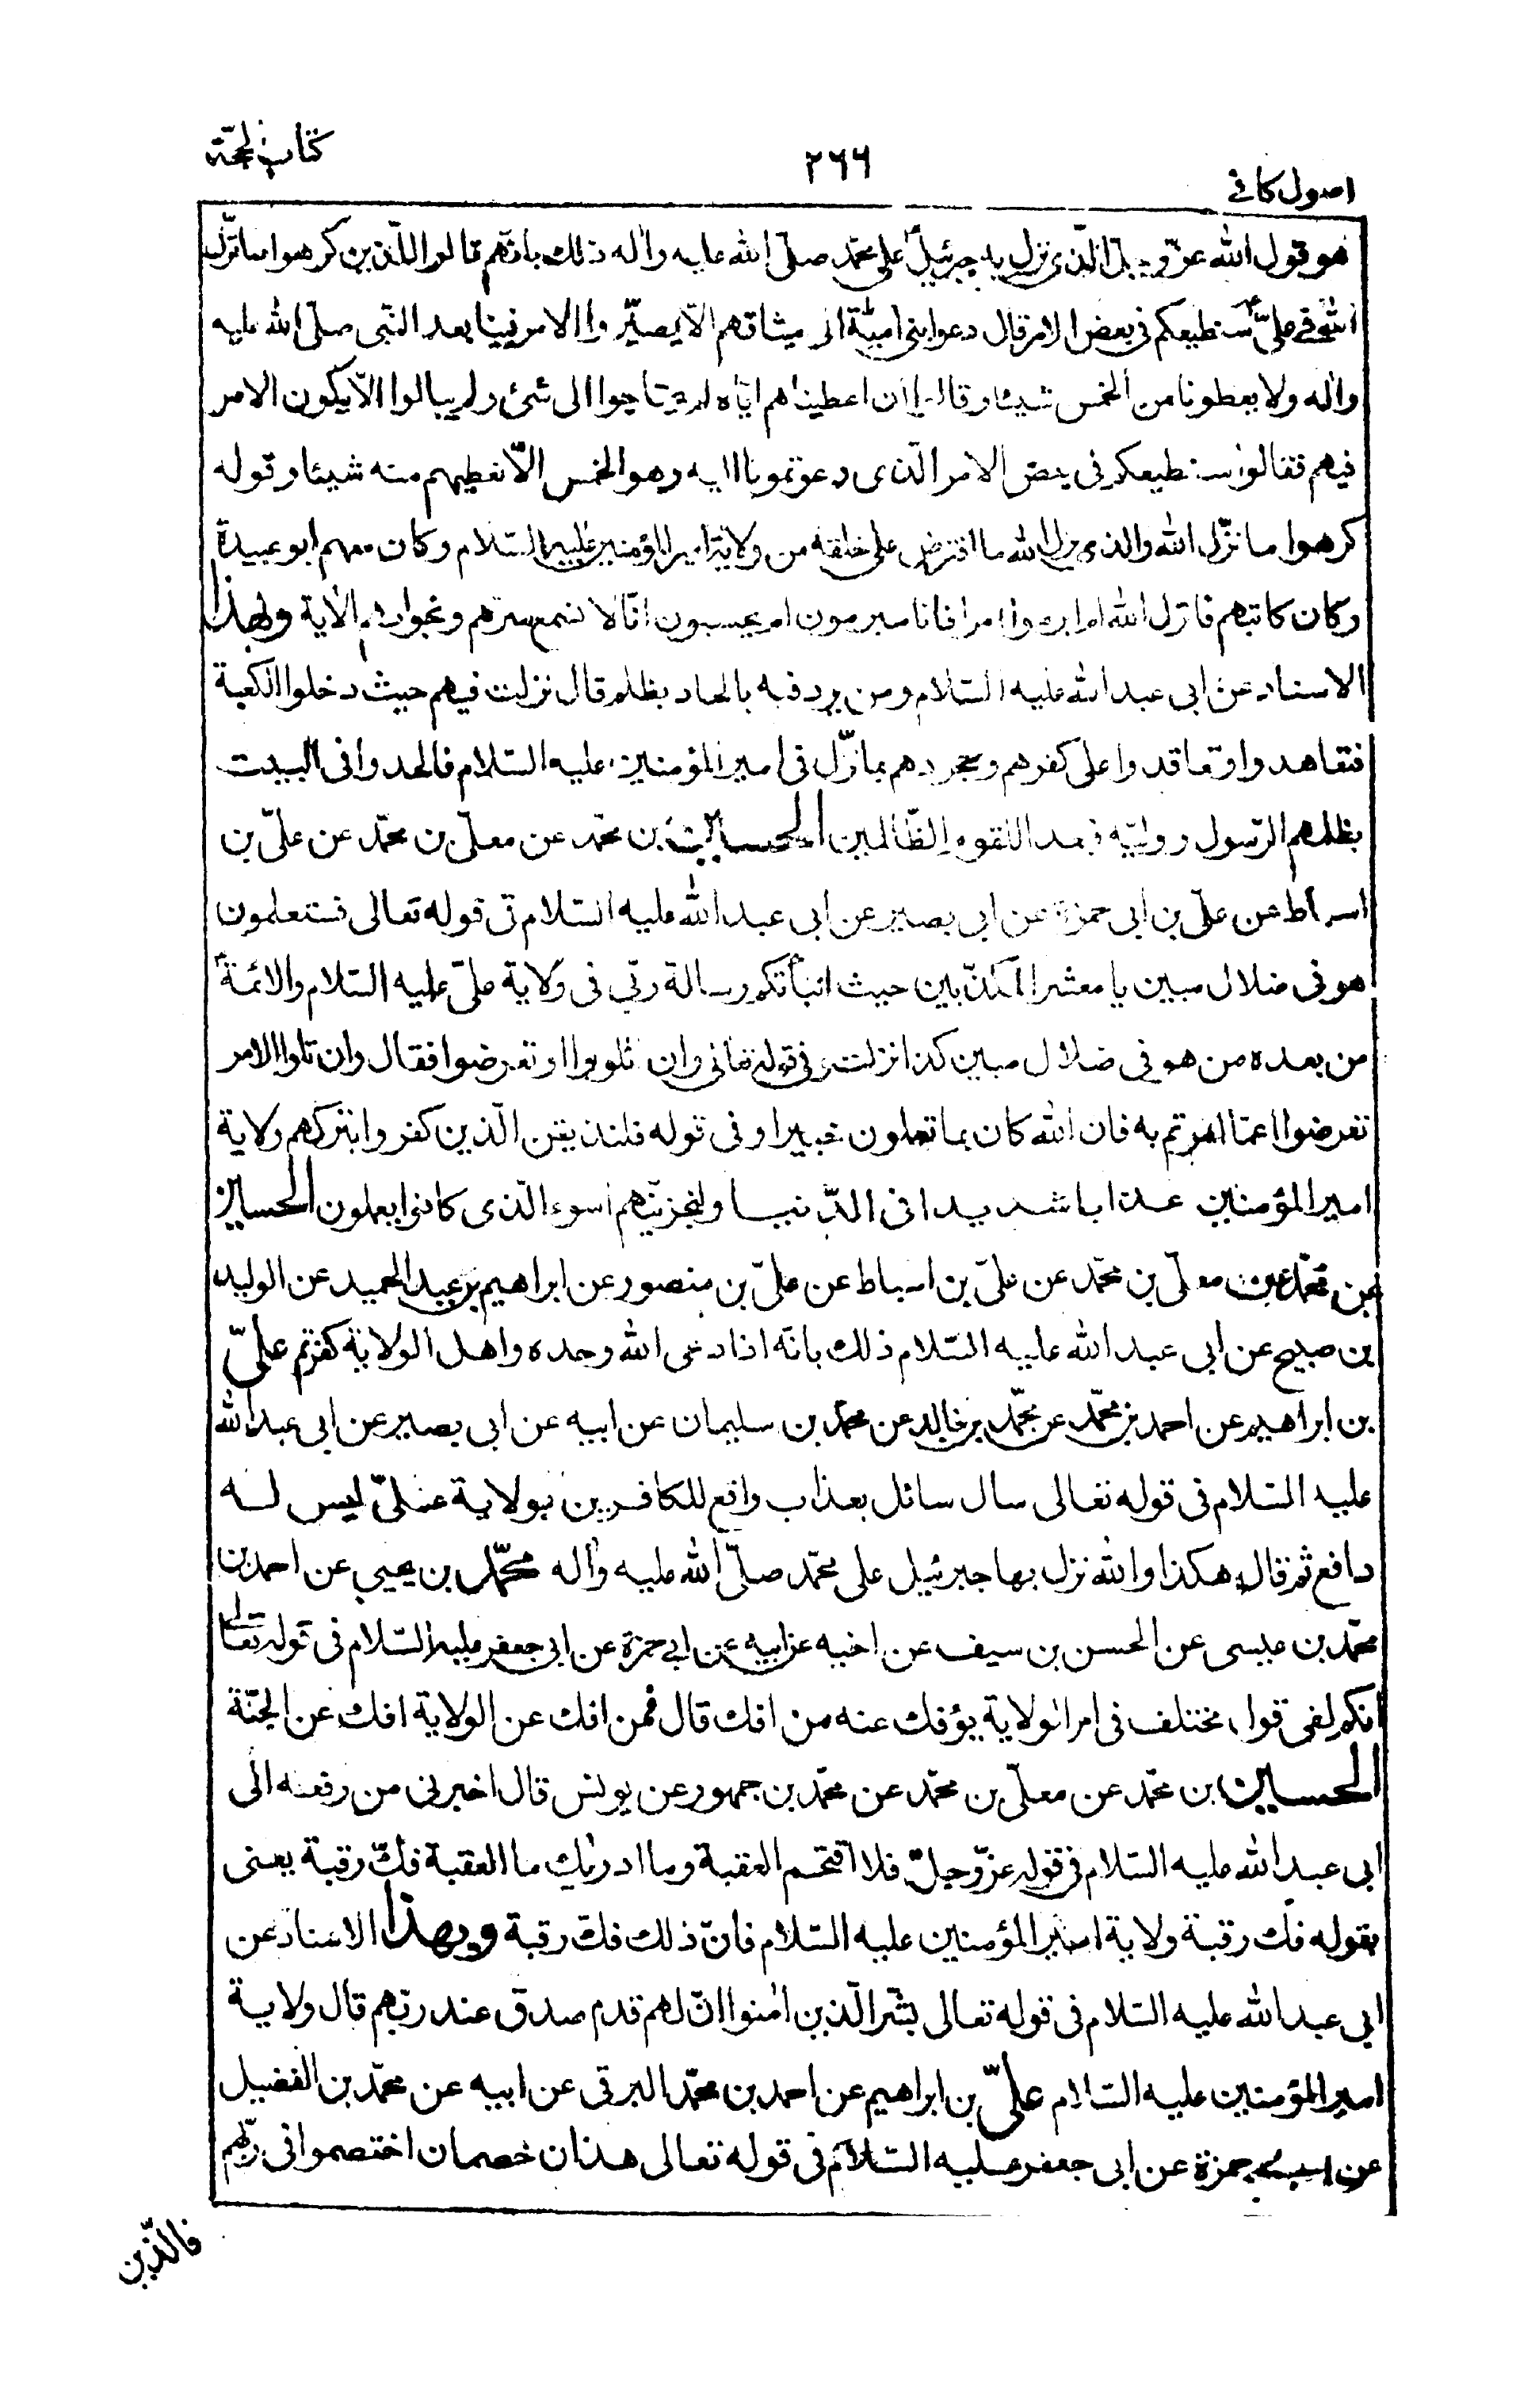 كتاب الحجة
٢٦٦
اصول كافي
هو قول الله عزّ وجلّ الّذى نزل به جبرئيل على محمّد صلّى الله عليه واٰله ذلك بانّهم قالوا للّذين كرهوا ما نزّل
الله فى علىّ سنطيعكم فى بعض الامر قال دعوا بنى اميّة الى ميثاقهم الّا يصيّروا الامر فينا بعد النّبى صلّى الله عليه
واٰله ولا يعطونا من الخمس شيئا وقالوا ان اعطيناهم ايّاه لم يحتاجوا الى شئ ولم يبالوا الّا يكون الامر
فيهم فقالوا سنطيعكم فى بعض الامر الّذى دعوتمونا اليه وهو الخمس الّا نعطيهم منه شيئا وقوله
كرهوا ما نزّل الله والذى نزل الله ما افترض على خلقه من ولاية امير المؤمنين عليه السّلام وكان معهم ابو عبيدة
وكان كاتبهم فانزل الله ام ابرموا امرا فانا مبرمون ام يحسبون انّا لا نسمع سرّهم ونجواهم الاٰية وبهذا
الاسناد عن ابى عبد الله عليه السّلام ومن يرد فيه بالحاد بظلم قال نزلت فيهم حيث دخلوا الكعبة
فتعاهدوا وتعاقدوا على كفرهم وجحودهم بما نزّل فى امير المؤمنين عليه السّلام فالحدوا فى البيت
بظلمهم الرّسول ووليّه فبعدا للقوم الظّالمين الحسين بن محمّد عن معلّى بن محمّد عن علىّ بن
اسباط عن علىّ بن ابى حمزة عن ابى بصير عن ابى عبد الله عليه السّلام فى قوله تعالى فستعلمون
هو فى ضلال مبين يا معشر المكذّبين حيث انبأتكم رسالة ربّى فى ولاية علىّ عليه السّلام والائمة
من بعده من هو فى ضلال مبين كذا نزلت وفى قوله تعالى وان تلووا او تعرضوا فقال وان تلووا الامر
تعرضوا عمّا امرتم به فان الله كان بما تعملون خبيرا وفى قوله فلنذيقن الّذين كفروا بتركهم ولاية
امير المؤمنين عذابا شديدا فى الدّنيا ولنجزينّهم اسوء الّذى كانوا يعملون الحسين
بن محمّد عن معلّى بن محمّد عن علىّ بن اسباط عن علىّ بن منصور عن ابراهيم بن عبد الحميد عن الوليد
بن صبيح عن ابى عبد الله عليه السّلام ذلك بانّه اذا دعى الله وحده واهل الولاية كفرتم علىّ
بن ابراهيم عن احمد بن محمّد عن محمّد بن خالد عن محمّد بن سليمان عن ابيه عن ابى بصير عن ابى عبد الله
عليه السّلام فى قوله تعالى سال سائل بعذاب واقع للكافرين بولاية علىّ ليس له
دافع ثم قال هكذا والله نزل بها جبرئيل على محمّد صلّى الله عليه واٰله محمّد بن يحيى عن احمد بن
محمّد بن عيسى عن الحسن بن سيف عن اخيه عن ابيه عن ابى حمزة عن ابى جعفر عليه السّلام فى قوله تعالى
انكم لفى قول مختلف فى امر الولاية يؤفك عنه من افك قال فمن افك عن الولاية افك عن الجنّة
الحسين بن محمّد عن معلّى بن محمّد عن محمّد بن جمهور عن يونس قال اخبرنى من رفعه الى
ابى عبد الله عليه السّلام فى قوله عزّ وجلّ فلا اقتحم العقبة وما ادرٰيك ما العقبة فكّ رقبة يعنى
بقوله فكّ رقبة ولاية امير المؤمنين عليه السّلام فانّ ذلك فكّ رقبة وبهذا الاسناد عن
ابى عبد الله عليه السّلام فى قوله تعالى بشّر الّذين اٰمنوا انّ لهم قدم صدق عند ربّهم قال ولاية
امير المؤمنين عليه السّلام علىّ بن ابراهيم عن احمد بن محمّد البرقى عن ابيه عن محمّد بن الفضيل
عن ابى حمزة عن ابى جعفر عليه السّلام فى قوله تعالى هذان خصمان اختصموا فى ربّهم
فالّذين